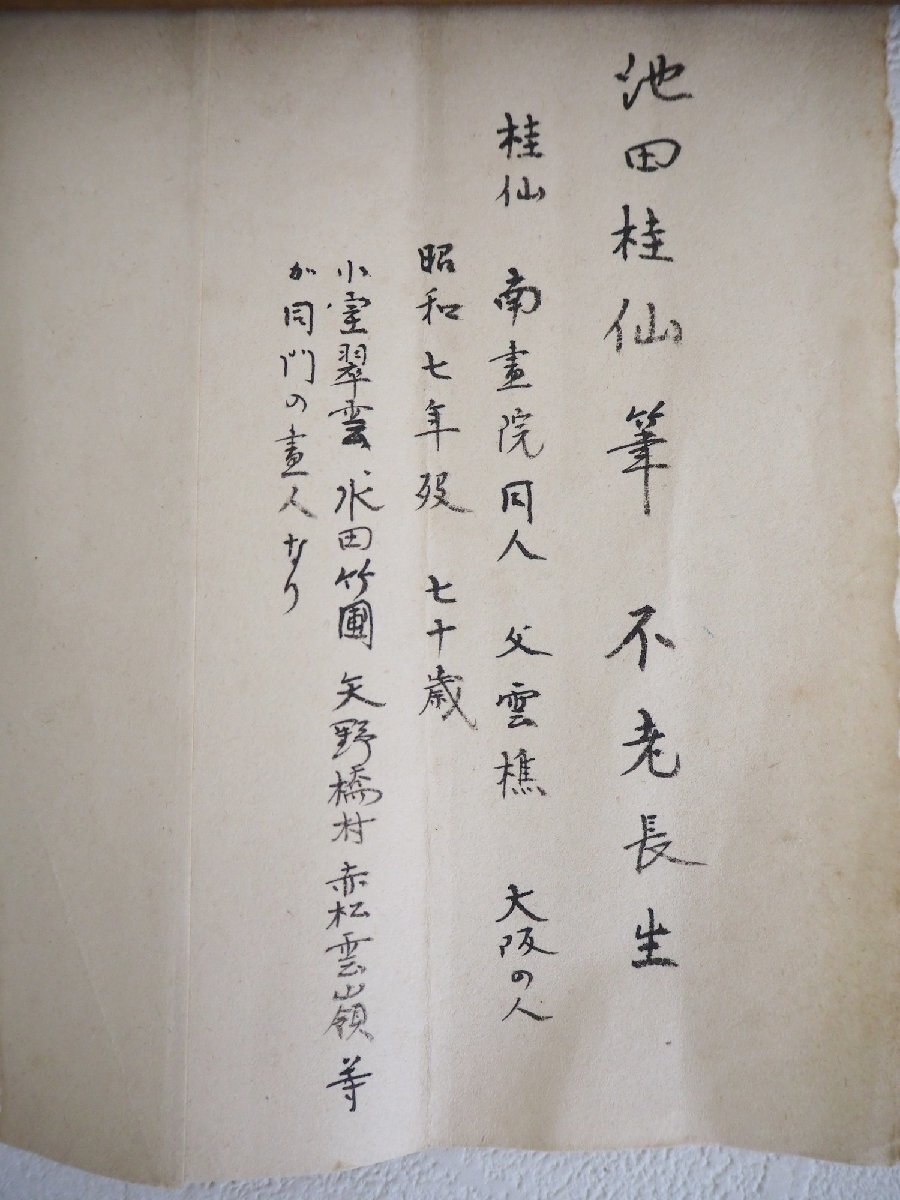 池田桂仙筆 不老長生
桂仙 南畫院同人 父雲樵 大阪の人
昭和七年歿 七十歳
小室翠雲 水田竹圃 矢野橋村 赤松雲嶺 等
が同門の畫人なり